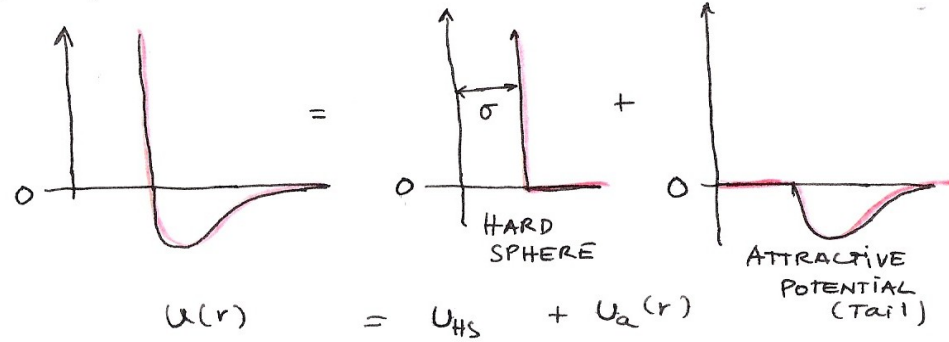 =
σ
+
0
0
0
HARD
SPHERE
ATTRACTIVE
POTENTIAL
(Tail)
u(r) = U_HS + U_a(r)